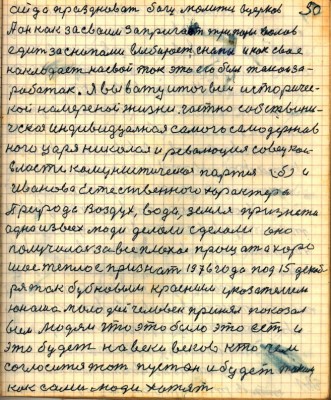 50
ай да праздноват богу молити в церков
Лон как засвоим запригает три пари волов
едит за снопами вибирает снапи и как свое
накладает насвой ток это его бил такой за-
работак. Я ви вату итог вей историчес-
кой намереной жизни. частно собствини-
ческа индивидуалная самого самодержав
ного царя николая и революция советской
власти камунистическая партия (б) и
Иванова естественного характера
Природа Воздух, вода, земля признета
одно из всех люди делали сделали оно
получилось за все плохое проща та хоро
шое теплое признат 1976 года под 15 декаб
ря так бубновим красним указателем
юноша молодей человек принял показал
всем людям что это било это ест и
это будет на веки веков кто чем
согласится тот пуст он и будет таким
как сами люди хотят